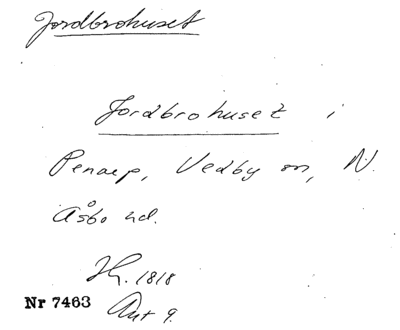 Jordbrohuset
Jordbrohuset i
Penarp, Vedby sn, N.
Åsbo hd.
Hf. 1818
Nr 7463
Ant 9.